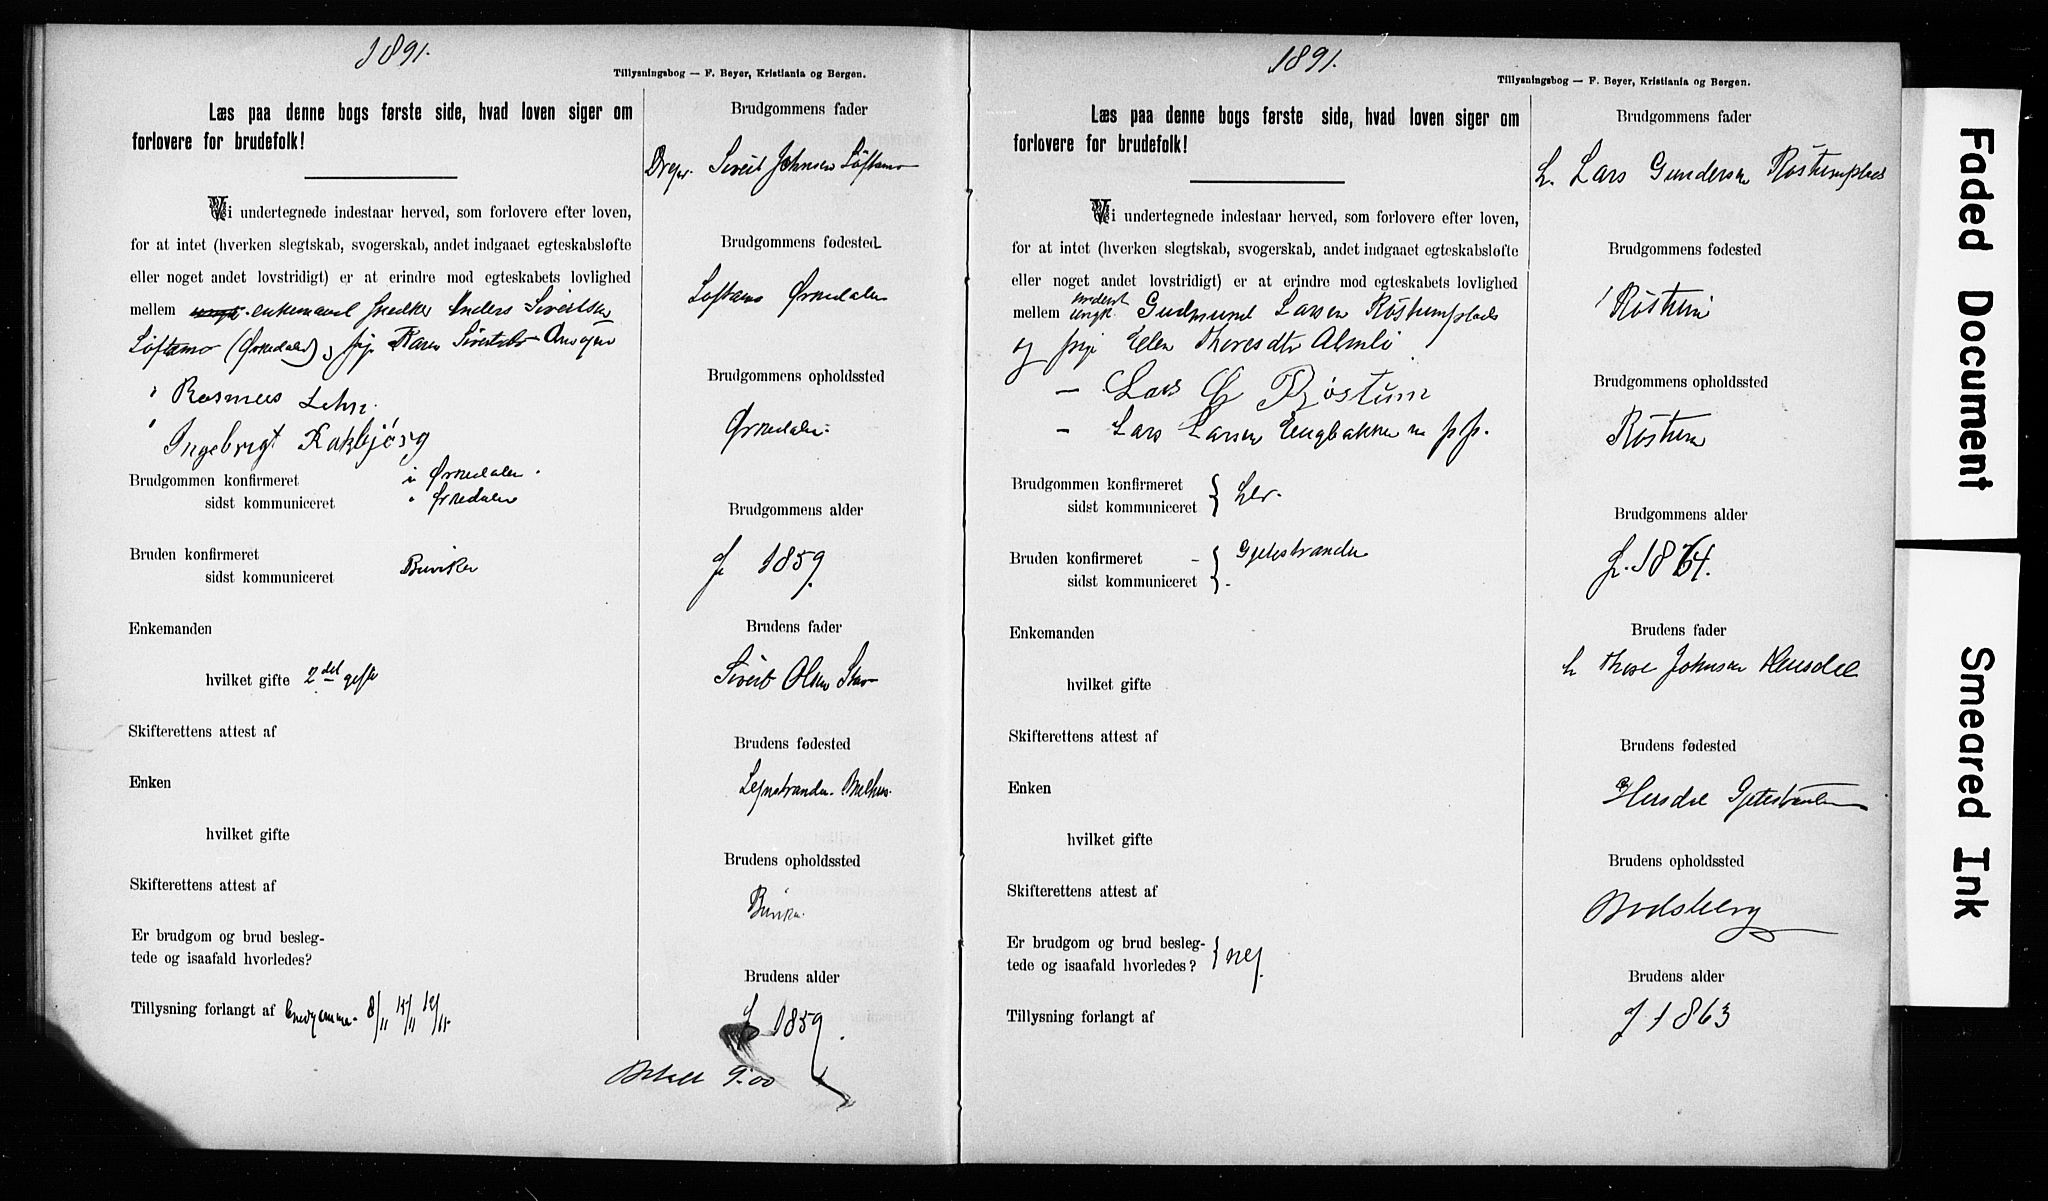 1891.
Tillysningsbog — F. Beyer, Kristiania og Bergen.
Læs paa denne bogs første side, hvad loven siger om
forlovere for brudefolk!
Vi undertegnede indestaar herved, som forlovere efter loven,
for at intet (hverken slegtskab, svogerskab, andet indgaaet egteskabsløfte
eller noget andet lovstridigt) er at erindre mod egteskabets lovlighed
mellem enkemand Snedker Anders Sivertsen
Løftamo (Ørkedalen) og pige Karen Sivertsdtr
" Rasmus Lehn.
" Ingebrigt Kakbjørg
Brudgommen konfirmeret i Ørkedalen.
sidst kommuniceret " Ørkedalen
Bruden konfirmeret
sidst kommuniceret Buviken
Enkemanden
hvilket gifte 2det gifte
Skifterettens attest af
Enken
hvilket gifte
Skifterettens attest af
Er brudgom og brud besleg-
tede og isaafald hvorledes?
Tillysning forlangt af 8/11 15/11
Brudgommens fader
Sivert Johnsen Løftamo
Brudgommens fødested
Løftamo Ørkedalen
Brudgommens opholdssted
Ørkedalen
Brudgommens alder
f 1859.
Brudens fader
Sivert Olsen
Brudens fødested
Leinstranden. Melhus.
Brudens opholdssted
Buviken
Brudens alder
f 1859.
Betalt 9.00
1891.
Tillysningsbog — F. Beyer, Kristiania og Bergen.
Læs paa denne bogs første side, hvad loven siger om
forlovere for brudefolk!
Vi undertegnede indestaar herved, som forlovere efter loven,
for at intet (hverken slegtskab, svogerskab, andet indgaaet egteskabsløfte
eller noget andet lovstridigt) er at erindre mod egteskabets lovlighed
mellem ungk. Gudmund Larsen Røstumplads
og pige Elen Thoresdtr Almli
— Lars Røstum
— Lars Larsen Engbakken m. p. p.
Brudgommen konfirmeret
sidst kommuniceret } her.
Bruden konfirmeret - Gjetestranden
sidst kommuniceret
Enkemanden
hvilket gifte
Skifterettens attest af
Enken
hvilket gifte
Skifterettens attest af
Er brudgom og brud besleg-
tede og isaafald hvorledes? } nej
Tillysning forlangt af
Brudgommens fader
Lars Gundersen Røstumplads
Brudgommens fødested
Røstum
Brudgommens opholdssted
Røstum
Brudgommens alder
f. 1864.
Brudens fader
Thore Johnsen
Brudens fødested
Gjetestranden
Brudens opholdssted
Brudens alder
f 1863
Faded Document
Smeared Ink